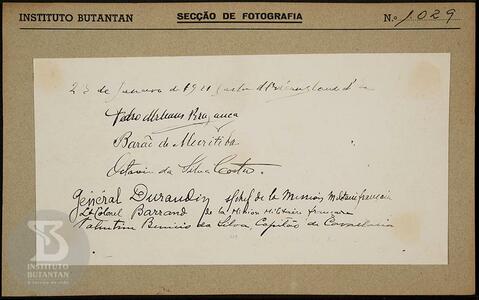 INSTITUTO BUTANTAN
SECÇÃO DE FOTOGRAFIA
N.º 1029
23 de Janeiro de 1921 Gaston d'Orléans
Pedro Orleans Bragança
Barão de Muritiba
Octavio da Silva Costa
Général Durandin chef de la Mission Militaire française
Lt Colonel Barrand de la Mission Militaire française
da Silva, Capitão de Cavallaria
INSTITUTO
BUTANTAN
A serviço da vida